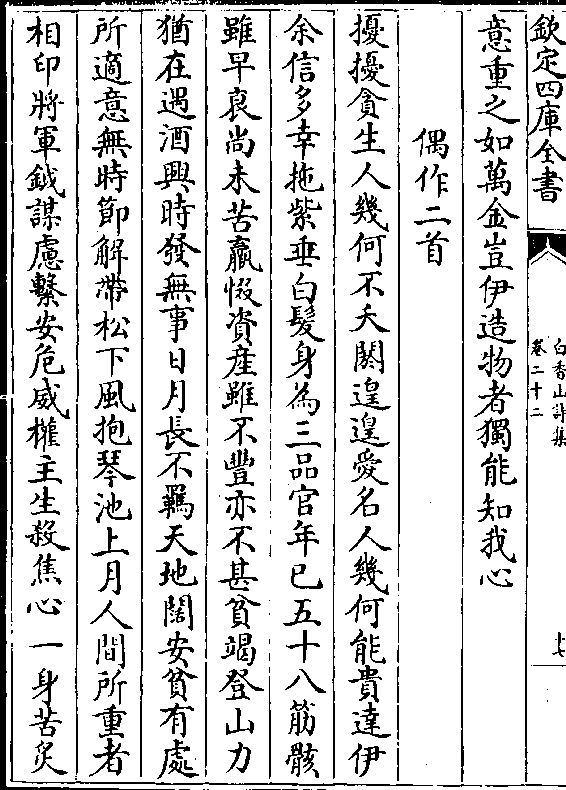 欽定四庫全書
白香山詩集
卷二十二
十七
意重之如萬金豈伊造物者獨能知我心
偶作二首
擾擾貪生人幾何不夭閼遑遑愛名人幾何能貴達伊
余信多幸拖紫垂白髮身為三品官年已五十八筋骸
雖早衰尚未苦羸惙資產雖不豐亦不甚貧竭登山力
猶在遇酒興時發無事日月長不羈天地闊安貧有處
所適意無時節解帶松下風抱琴池上月人間所重者
相印將軍鉞謀慮繫安危威權主生殺焦心一身苦炙